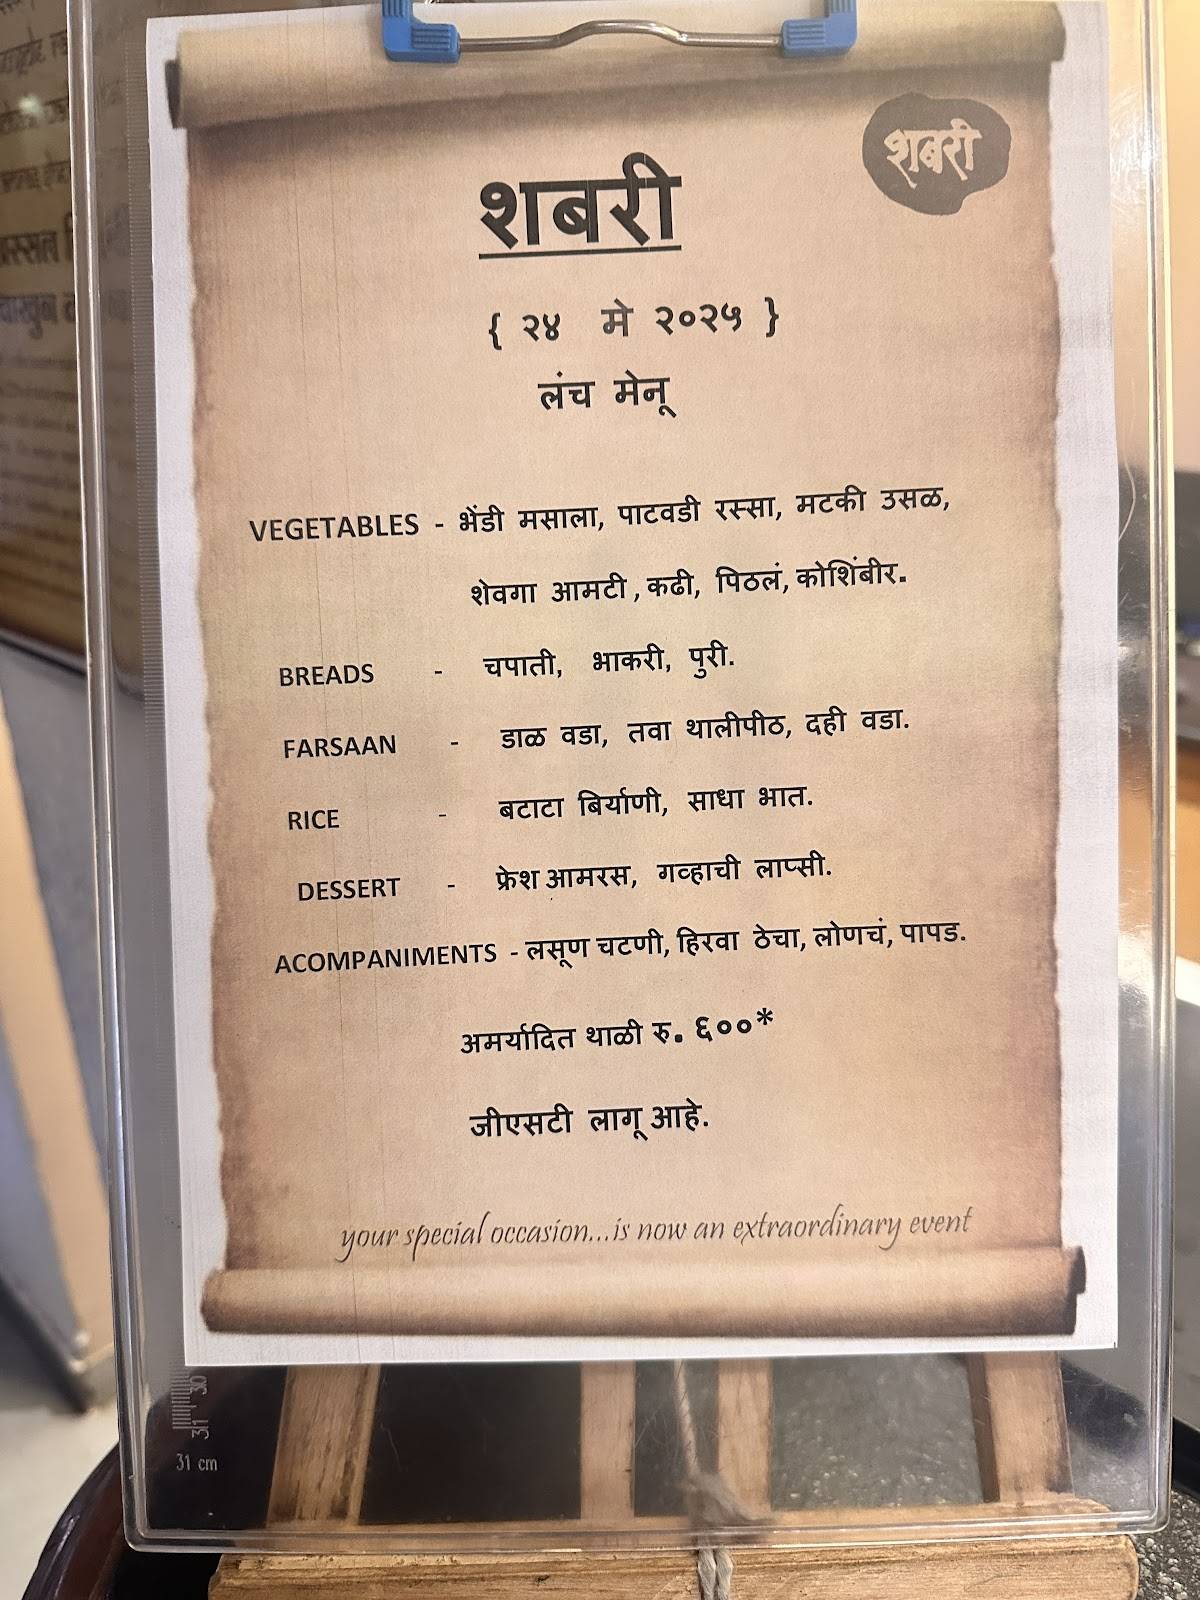 शबरी
शबरी
{ २४ मे २०२५ }
लंच मेनू
VEGETABLES - भेंडी मसाला, पाटवडी रस्सा, मटकी उसळ,
शेवगा आमटी , कढी, पिठलं, कोशिंबीर.
BREADS - चपाती, भाकरी, पुरी.
FARSAAN - डाळ वडा, तवा थालीपीठ, दही वडा.
RICE - बटाटा बिर्याणी, साधा भात.
DESSERT - फ्रेश आमरस, गव्हाची लाप्सी.
ACOMPANIMENTS - लसूण चटणी, हिरवा ठेचा, लोणचं, पापड.
अमर्यादित थाळी रु. ६००*
जीएसटी लागू आहे.
your special occasion...is now an extraordinary event
31 30
31 cm